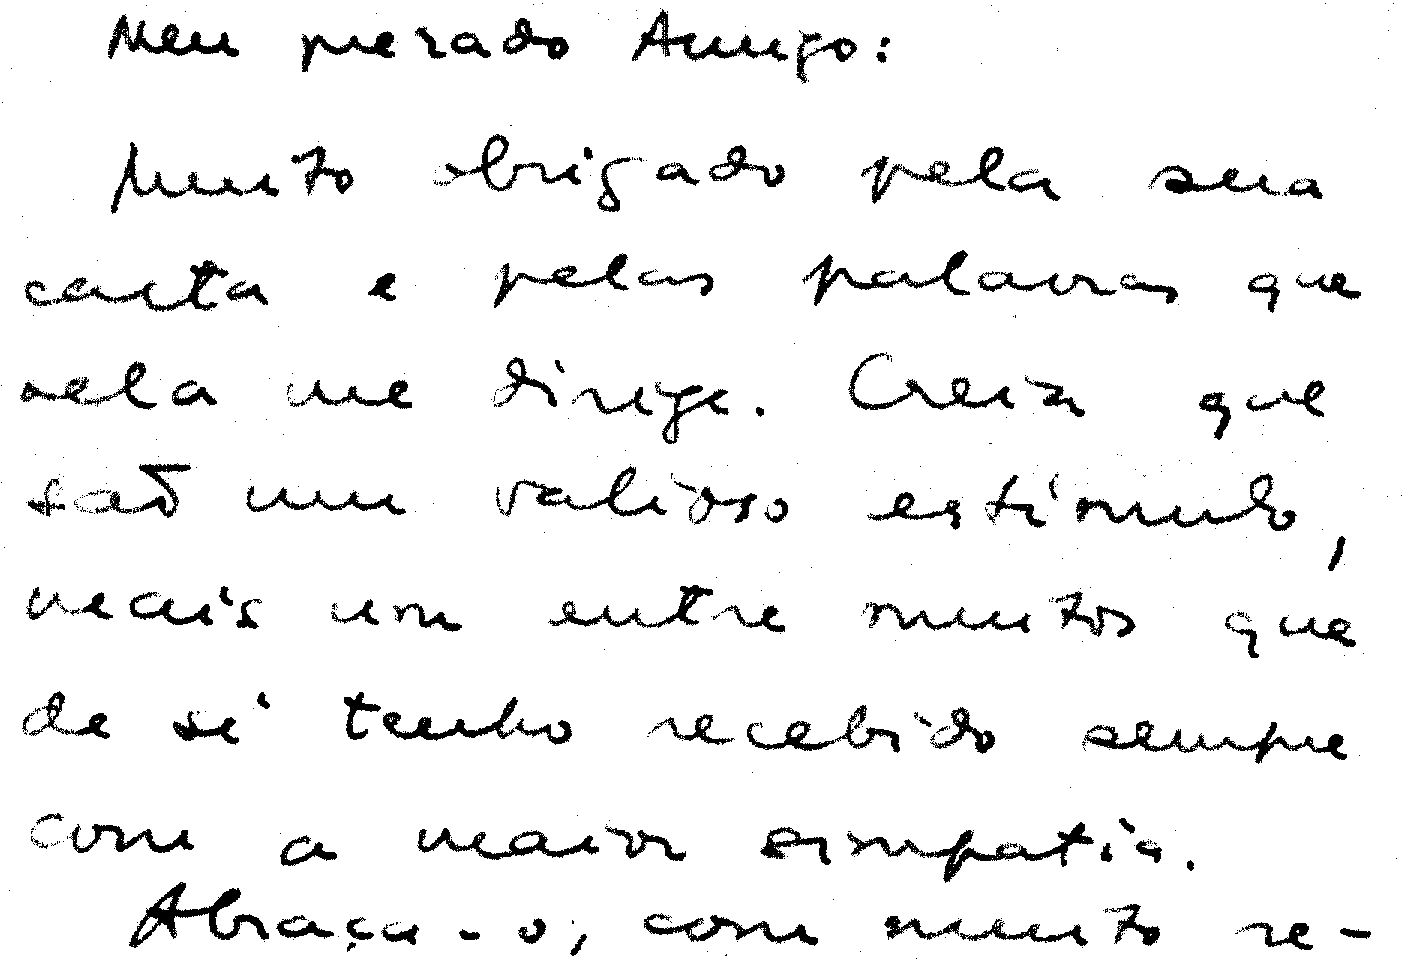 Meu prezado Amigo:
Muito obrigado pela sua
carta e pelas palavras que
nela me dirige. Creia que
são um valioso estímulo,
mais um entre muitos que
de si tenho recebido sempre
com a maior simpatia.
Abraça-o, com muito re-